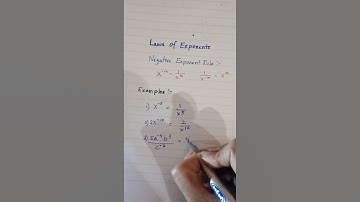 Laws of Exponents
Negative Exponent Rule :-
x⁻ᵐ = 1/xᵐ 1/x⁻ᵐ = xᵐ
Examples :-
1) x⁻⁵ = 1/x⁵
2) 2x⁻¹² = 2/x¹²
3) 5a⁻⁴b³/c⁻² =